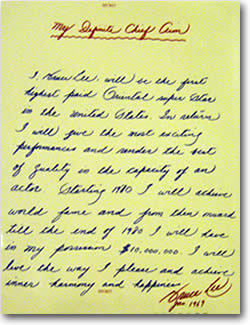 SECRET
My Definite Chief Aim
I, Bruce Lee, will be the first
highest paid Oriental super star
in the United States. In return
I will give the most exciting
performances and render the best
of quality in the capacity of an
actor. Starting 1970 I will achieve
world fame and from then onward
till the end of 1980 I will have
in my possession $10,000,000. I will
live the way I please and achieve
inner harmony and happiness.
Bruce Lee
Jan. 1969
SECRET